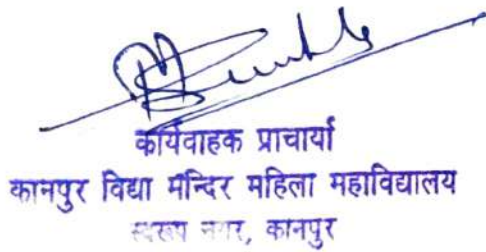 कार्यवाहक प्राचार्या
कानपुर विद्या मन्दिर महिला महाविद्यालय
स्वरूप नगर, कानपुर